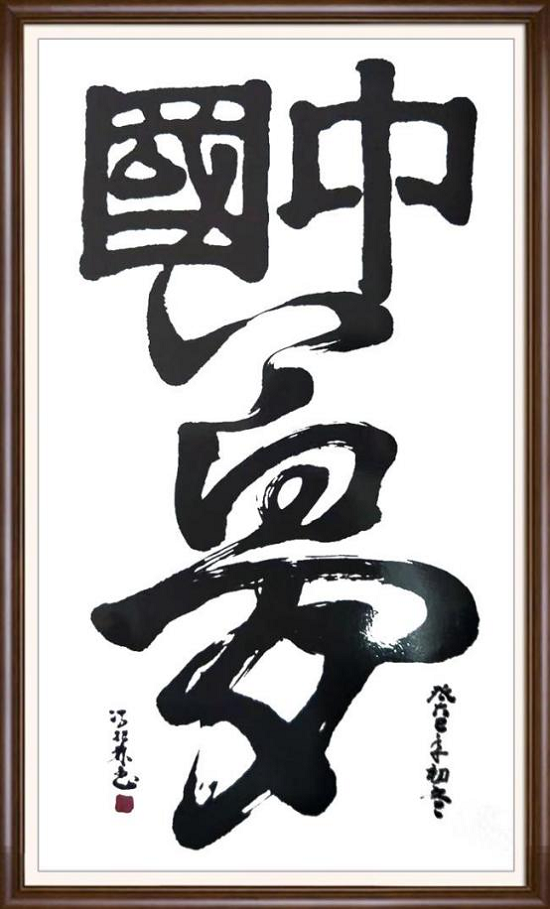 中國
夢
癸巳年初冬